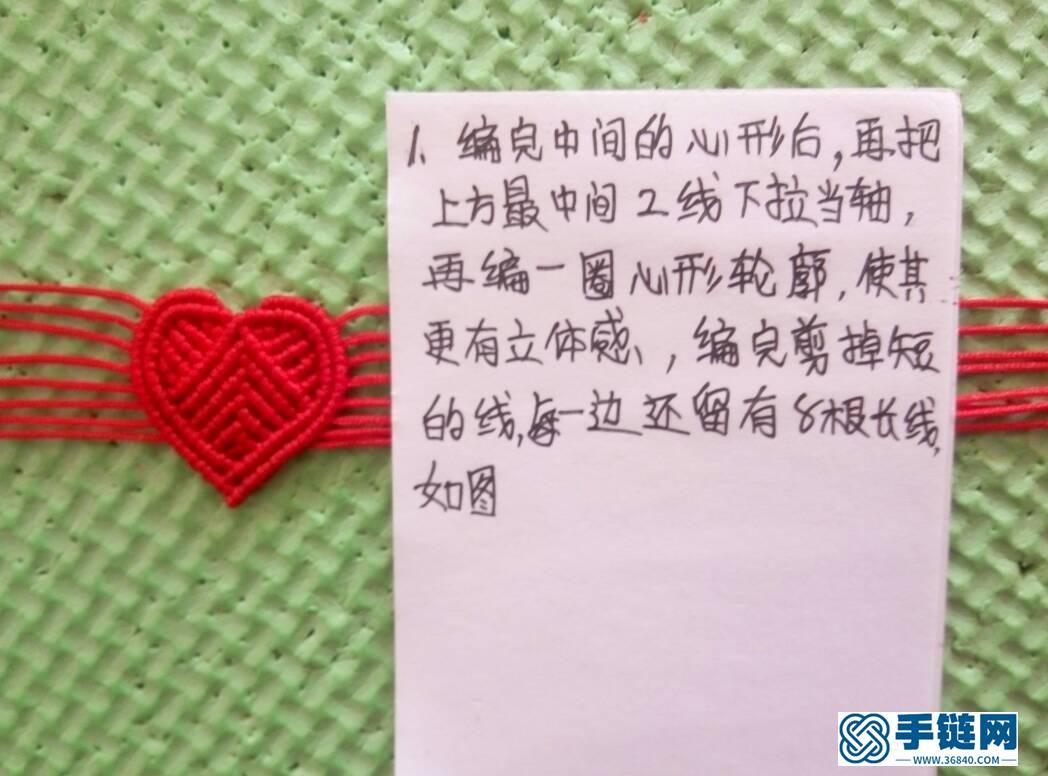 1、编完中间的心形后,再把
上方最中间2线下拉当轴,
再编一圈心形轮廓,使其
更有立体感、,编完剪掉短
的线,每一边还留有8根长线,
如图
手链网
WWW.36840.COM